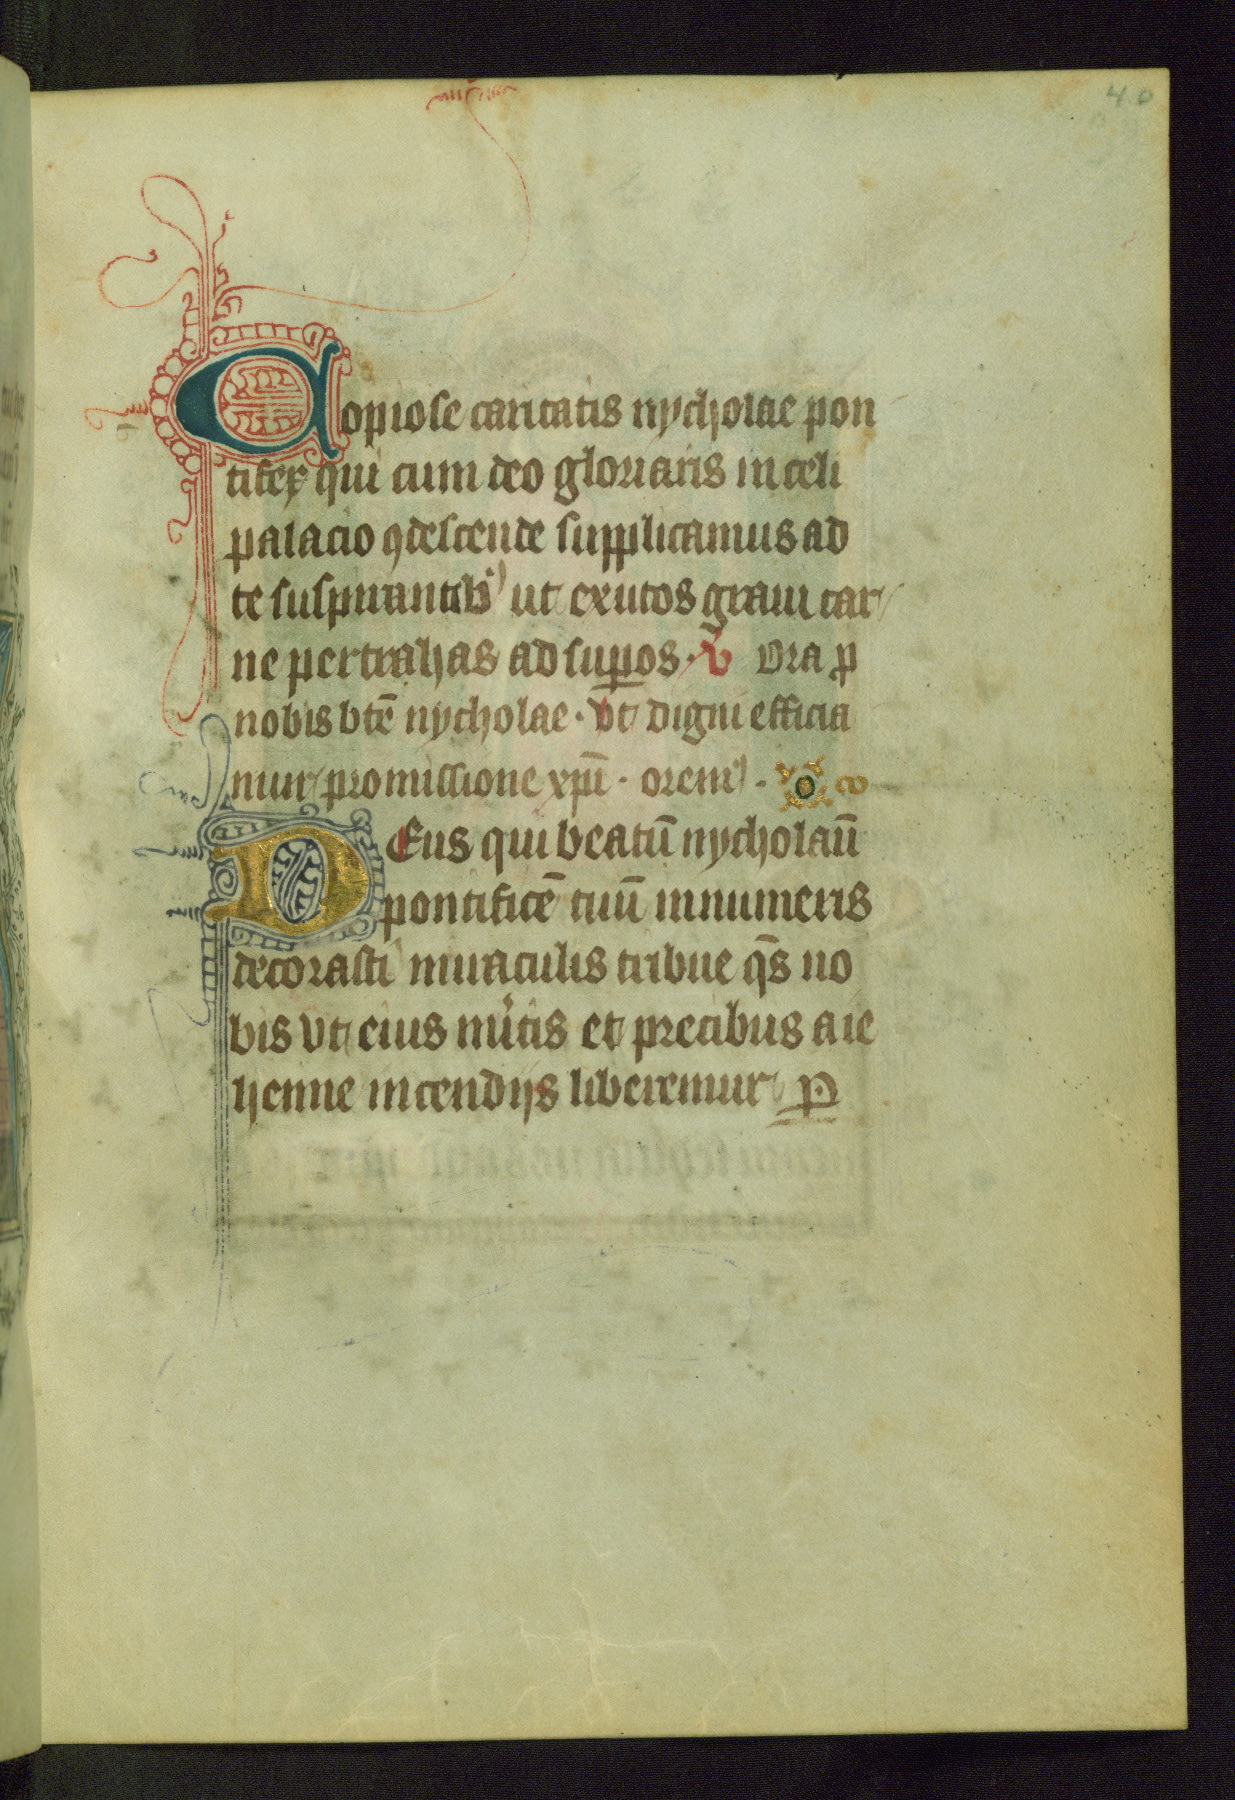 40
Copiose caritatis nycholae pon
tifex qui cum deo gloriaris in celi
palacio ꝯdescende supplicamus ad
te suspirantibꝰ ut exutos graui car
ne pertrahas ad suꝑos. V Ora ꝓ
nobis btē nycholae. Vt digni efficia
mur promissione xp̄i. oremꝰ.
DEus qui beatū nycholaū
pontificē tuū innumeris
decorasti miraculis tribue qs̄ no
bis vt eius mītis et precibus a ie
henne incendijs liberemur P